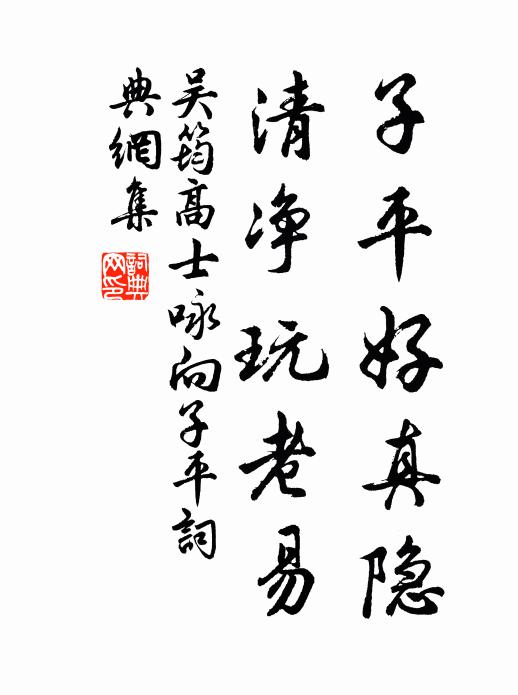 子平好真隐
清净玩老易
吴筠高士咏向子平詞
典網集
詞典网印